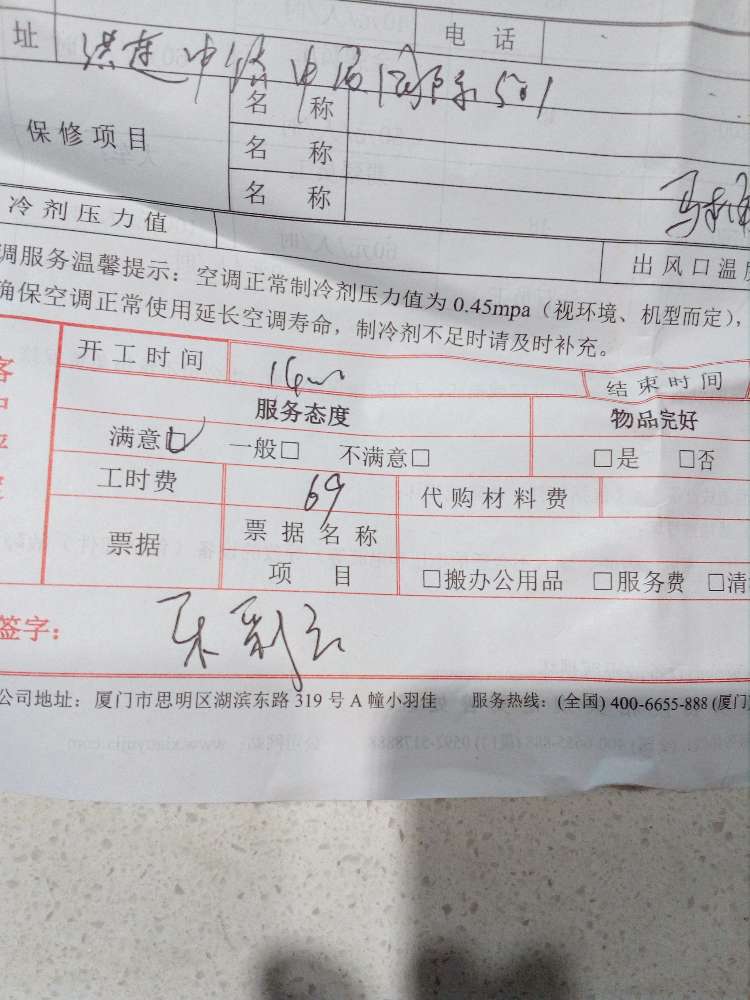 址 电话
501
保修项目
名称
名称
名称
冷剂压力值
出风口温度
调服务温馨提示：空调正常制冷剂压力值为 0.45mpa（视环境、机型而定），
确保空调正常使用延长空调寿命，制冷剂不足时请及时补充。
开工时间 结束时间
服务态度 物品完好
满意□ 一般□ 不满意□ □是 □否
工时费 69 代购材料费
票据 票据名称
项目 □搬办公用品 □服务费 □清
签字：
公司地址：厦门市思明区湖滨东路 319 号 A 幢小羽佳 服务热线：(全国) 400-6655-888 (厦门